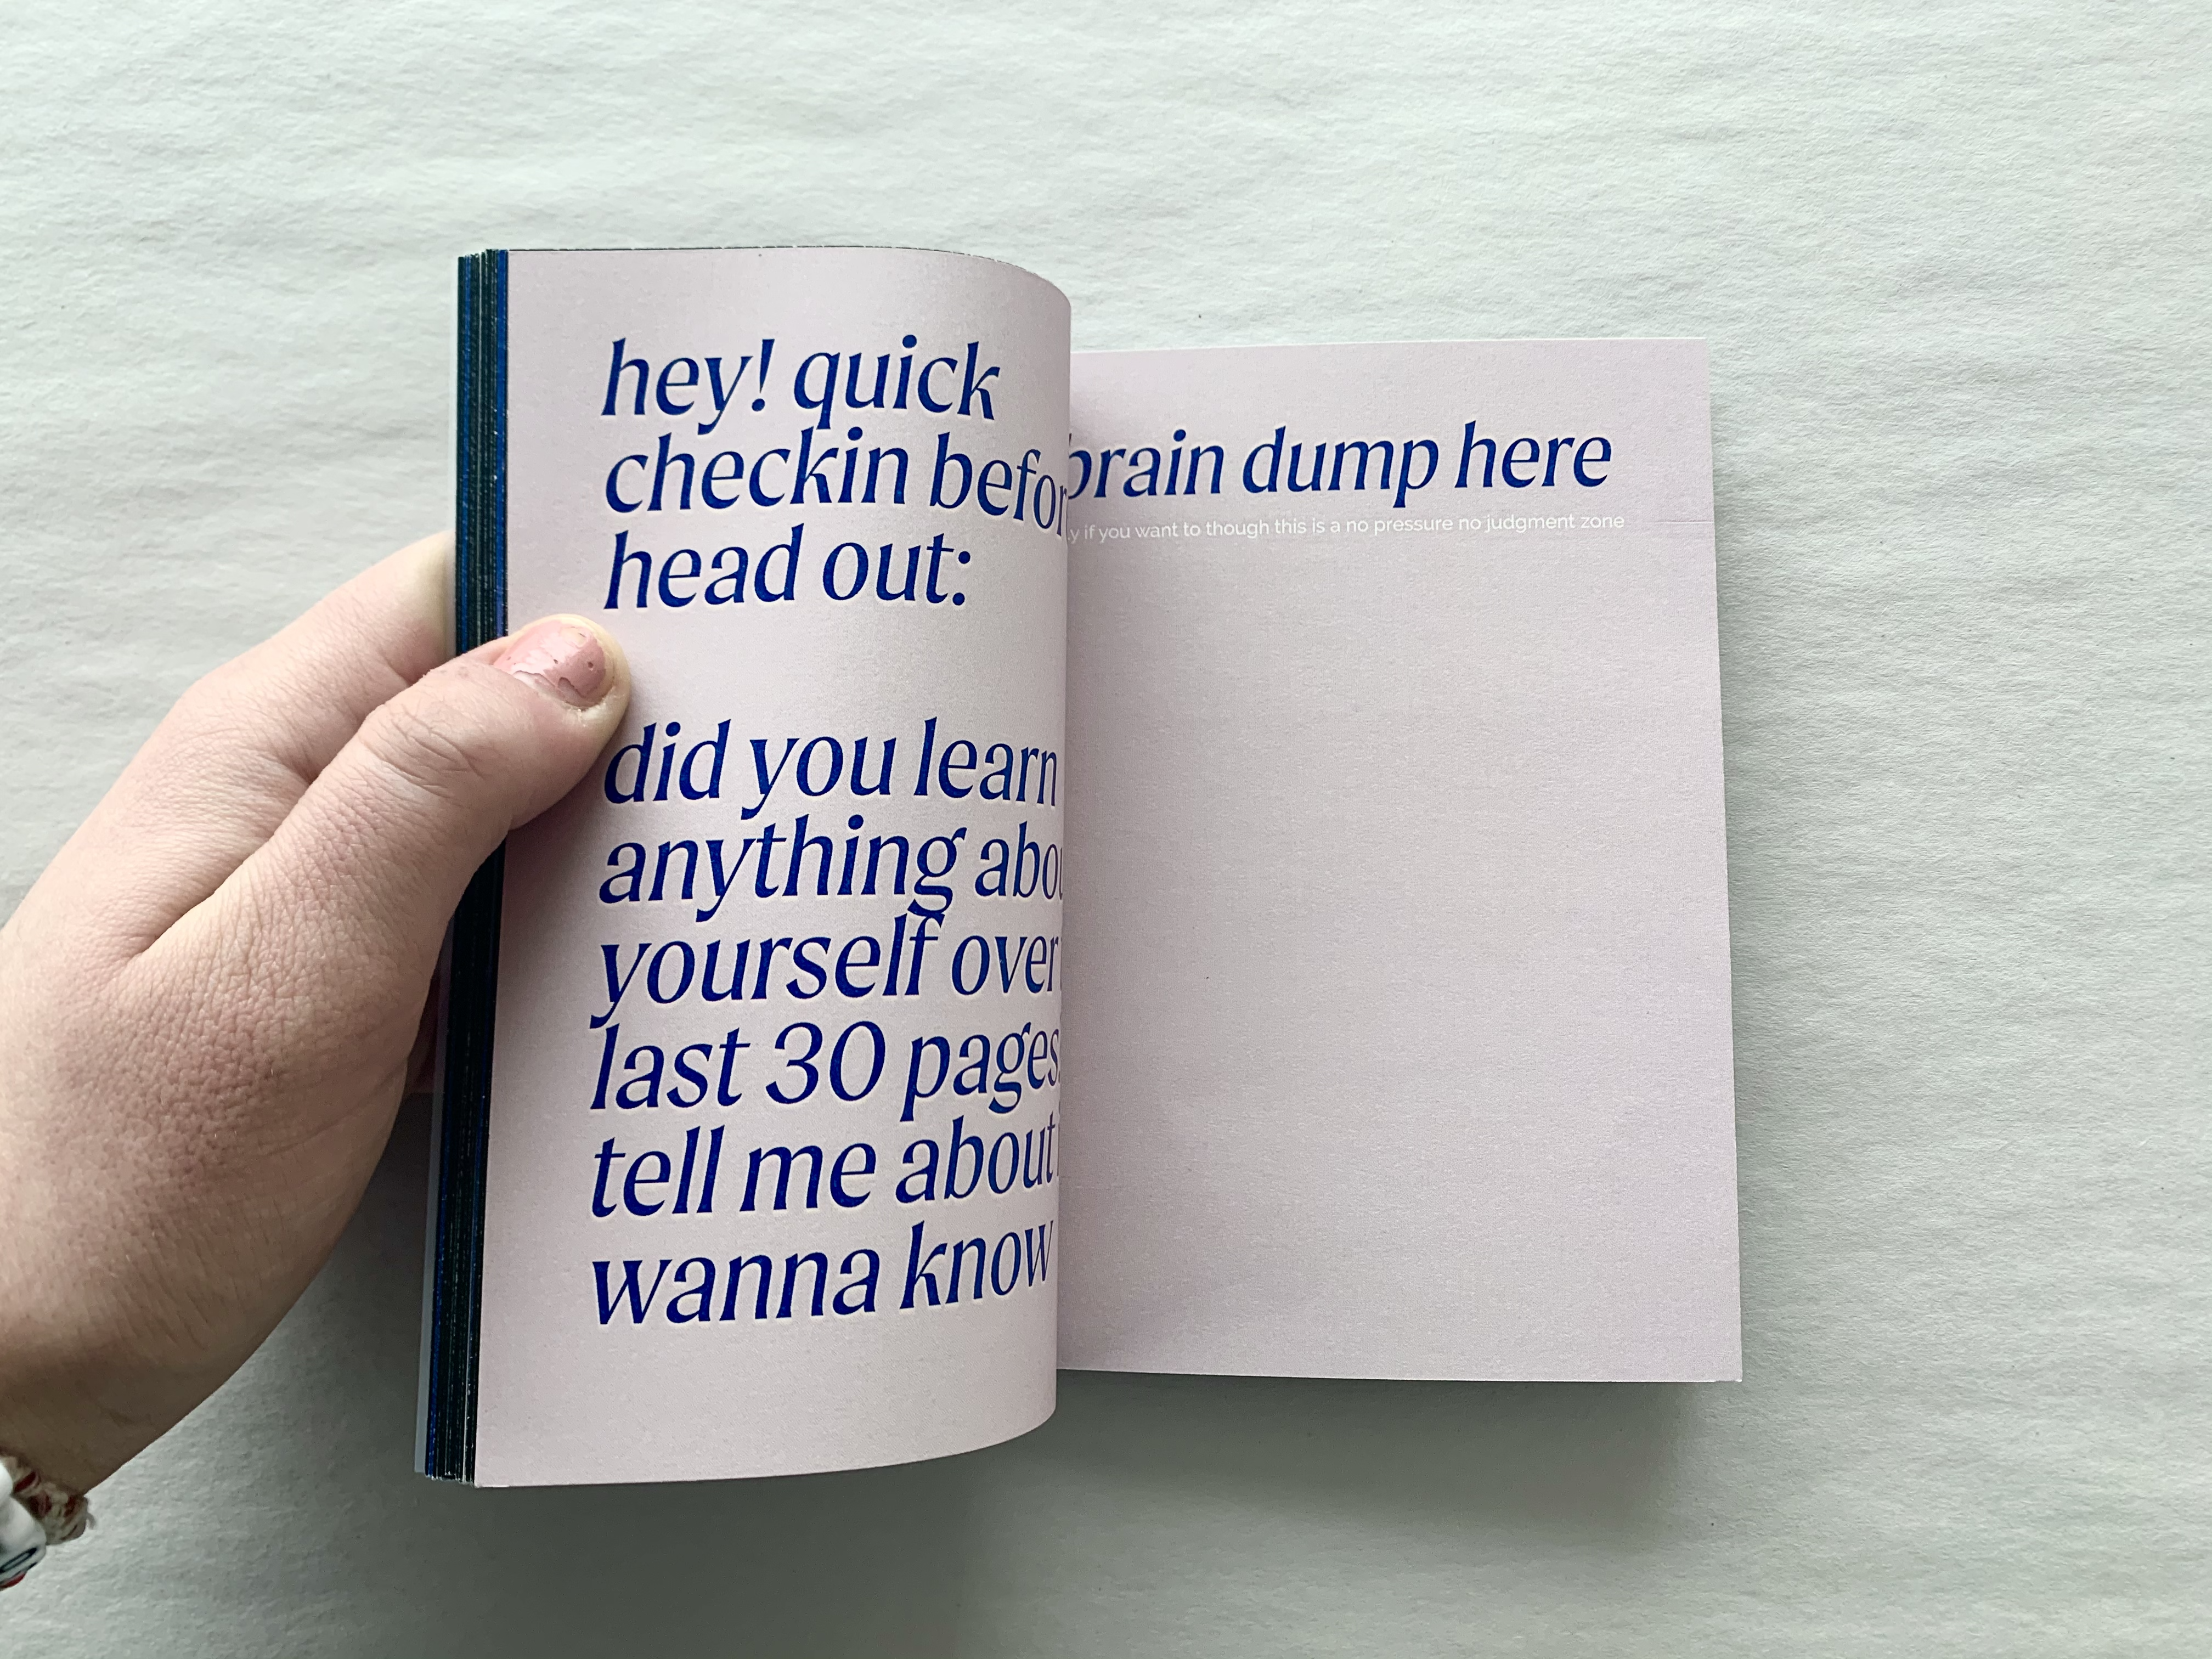 hey! quick
checkin befor
head out:
did you learn
anything abou
yourself over
last 30 pages
tell me about
wanna know
brain dump here
y if you want to though this is a no pressure no judgment zone